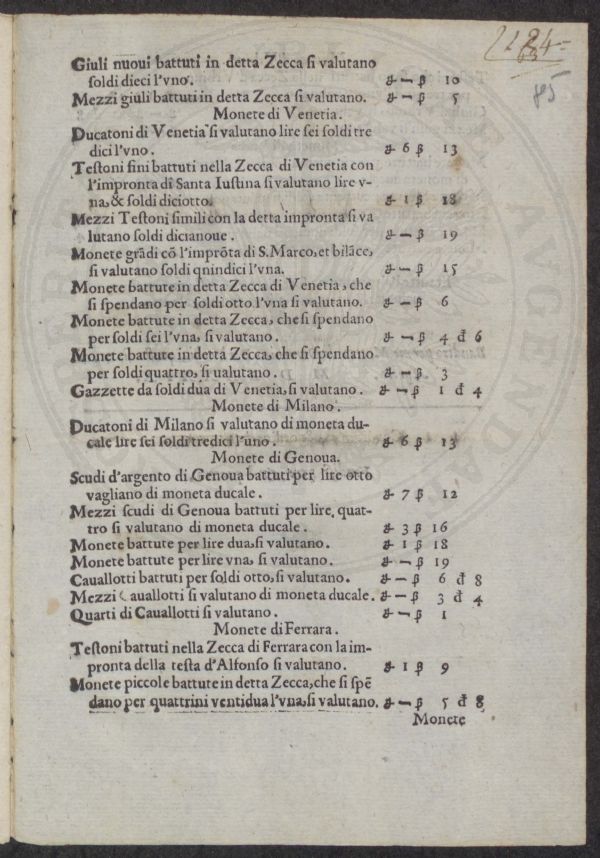 Giuli nuoui battuti in detta Zecca si valutano
soldi dieci l'vno. ₰ — ß 10
Mezzi giuli battuti in detta Zecca si valutano. ₰ — ß 5
Monete di Venetia.
Ducatoni di Venetia si valutano lire sei soldi tre
dici l'vno. ₰ 6 ß 13
Testoni fini battuti nella Zecca di Venetia con
l'impronta di Santa Iustina si valutano lire v-
na, & soldi diciotto. ₰ 1 ß 18
Mezzi Testoni simili con la detta impronta si va
lutano soldi dicianoue. ₰ — ß 19
Monete grãdi cõ l'imprõta di S. Marco, et bilãce,
si valutano soldi qnindici l'vna. ₰ — ß 15
Monete battute in detta Zecca di Venetia, che
si spendano per soldi otto l'vna si valutano. ₰ — ß 6
Monete battute in detta Zecca, che si spendano
per soldi sei l'vna, si valutano. ₰ — ß 4 đ 6
Monete battute in detta Zecca, che si spendano
per soldi quattro, si ualutano. ₰ — ß 3
Gazzette da soldi dua di Venetia, si valutano. ₰ — ß 1 đ 4
Monete di Milano.
Ducatoni di Milano si valutano di moneta du-
cale lire sei soldi tredici l'uno. ₰ 6 ß 13
Monete di Genoua.
Scudi d'argento di Genoua battuti per lire otto
vagliano di moneta ducale. ₰ 7 ß 12
Mezzi scudi di Genoua battuti per lire quat-
tro si valutano di moneta ducale. ₰ 3 ß 16
Monete battute per lire dua, si valutano. ₰ 1 ß 18
Monete battute per lire vna, si valutano. ₰ — ß 19
Cauallotti battuti per soldi otto, si valutano. ₰ — ß 6 đ 8
Mezzi Cauallotti si valutano di moneta ducale. ₰ — ß 3 đ 4
Quarti di Cauallotti si valutano. ₰ — ß 1
Monete di Ferrara.
Testoni battuti nella Zecca di Ferrara con la im-
pronta della testa d'Alfonso si valutano. ₰ 1 ß 9
Monete piccole battute in detta Zecca, che si spẽ
dano per quattrini ventidua l'vna, si valutano. ₰ — ß 5 đ 8
Monete
85